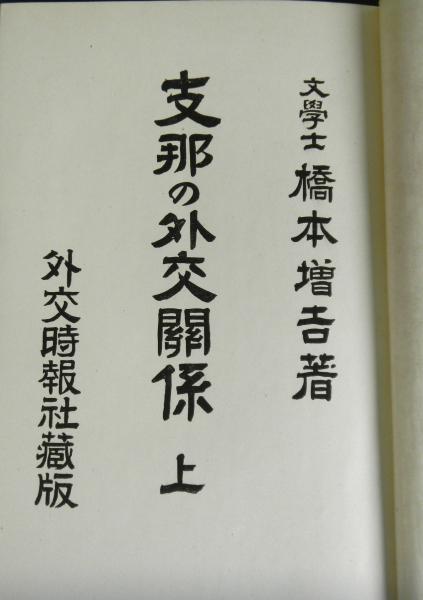 文學士 橋本增吉著
支那の外交關係 上
外交時報社藏版